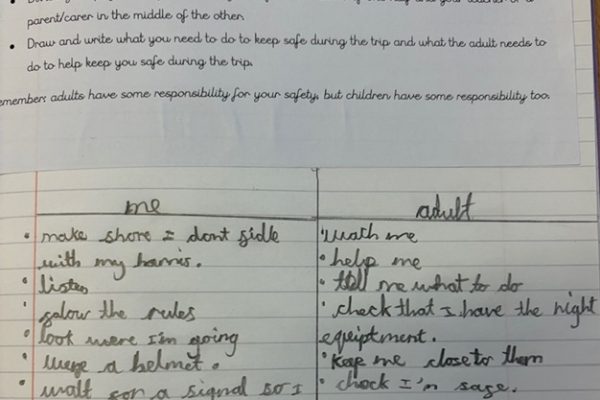 parent/carer in the middle of the other.
• Draw and write what you need to do to keep safe during the trip and what the adult needs to
do to help keep you safe during the trip.
emember: adults have some responsibility for your safety, but children have some responsibility too.
me
• make shore I dont fidle
with my harnis.
• listen
• folow the rules
• look were I'm going
• were a helmet.
• wait for a signal so I
adult
• wath me
• help me
• tell me what to do
• check that I have the right
equiptment.
• Keep me close to them
• check I'm safe.